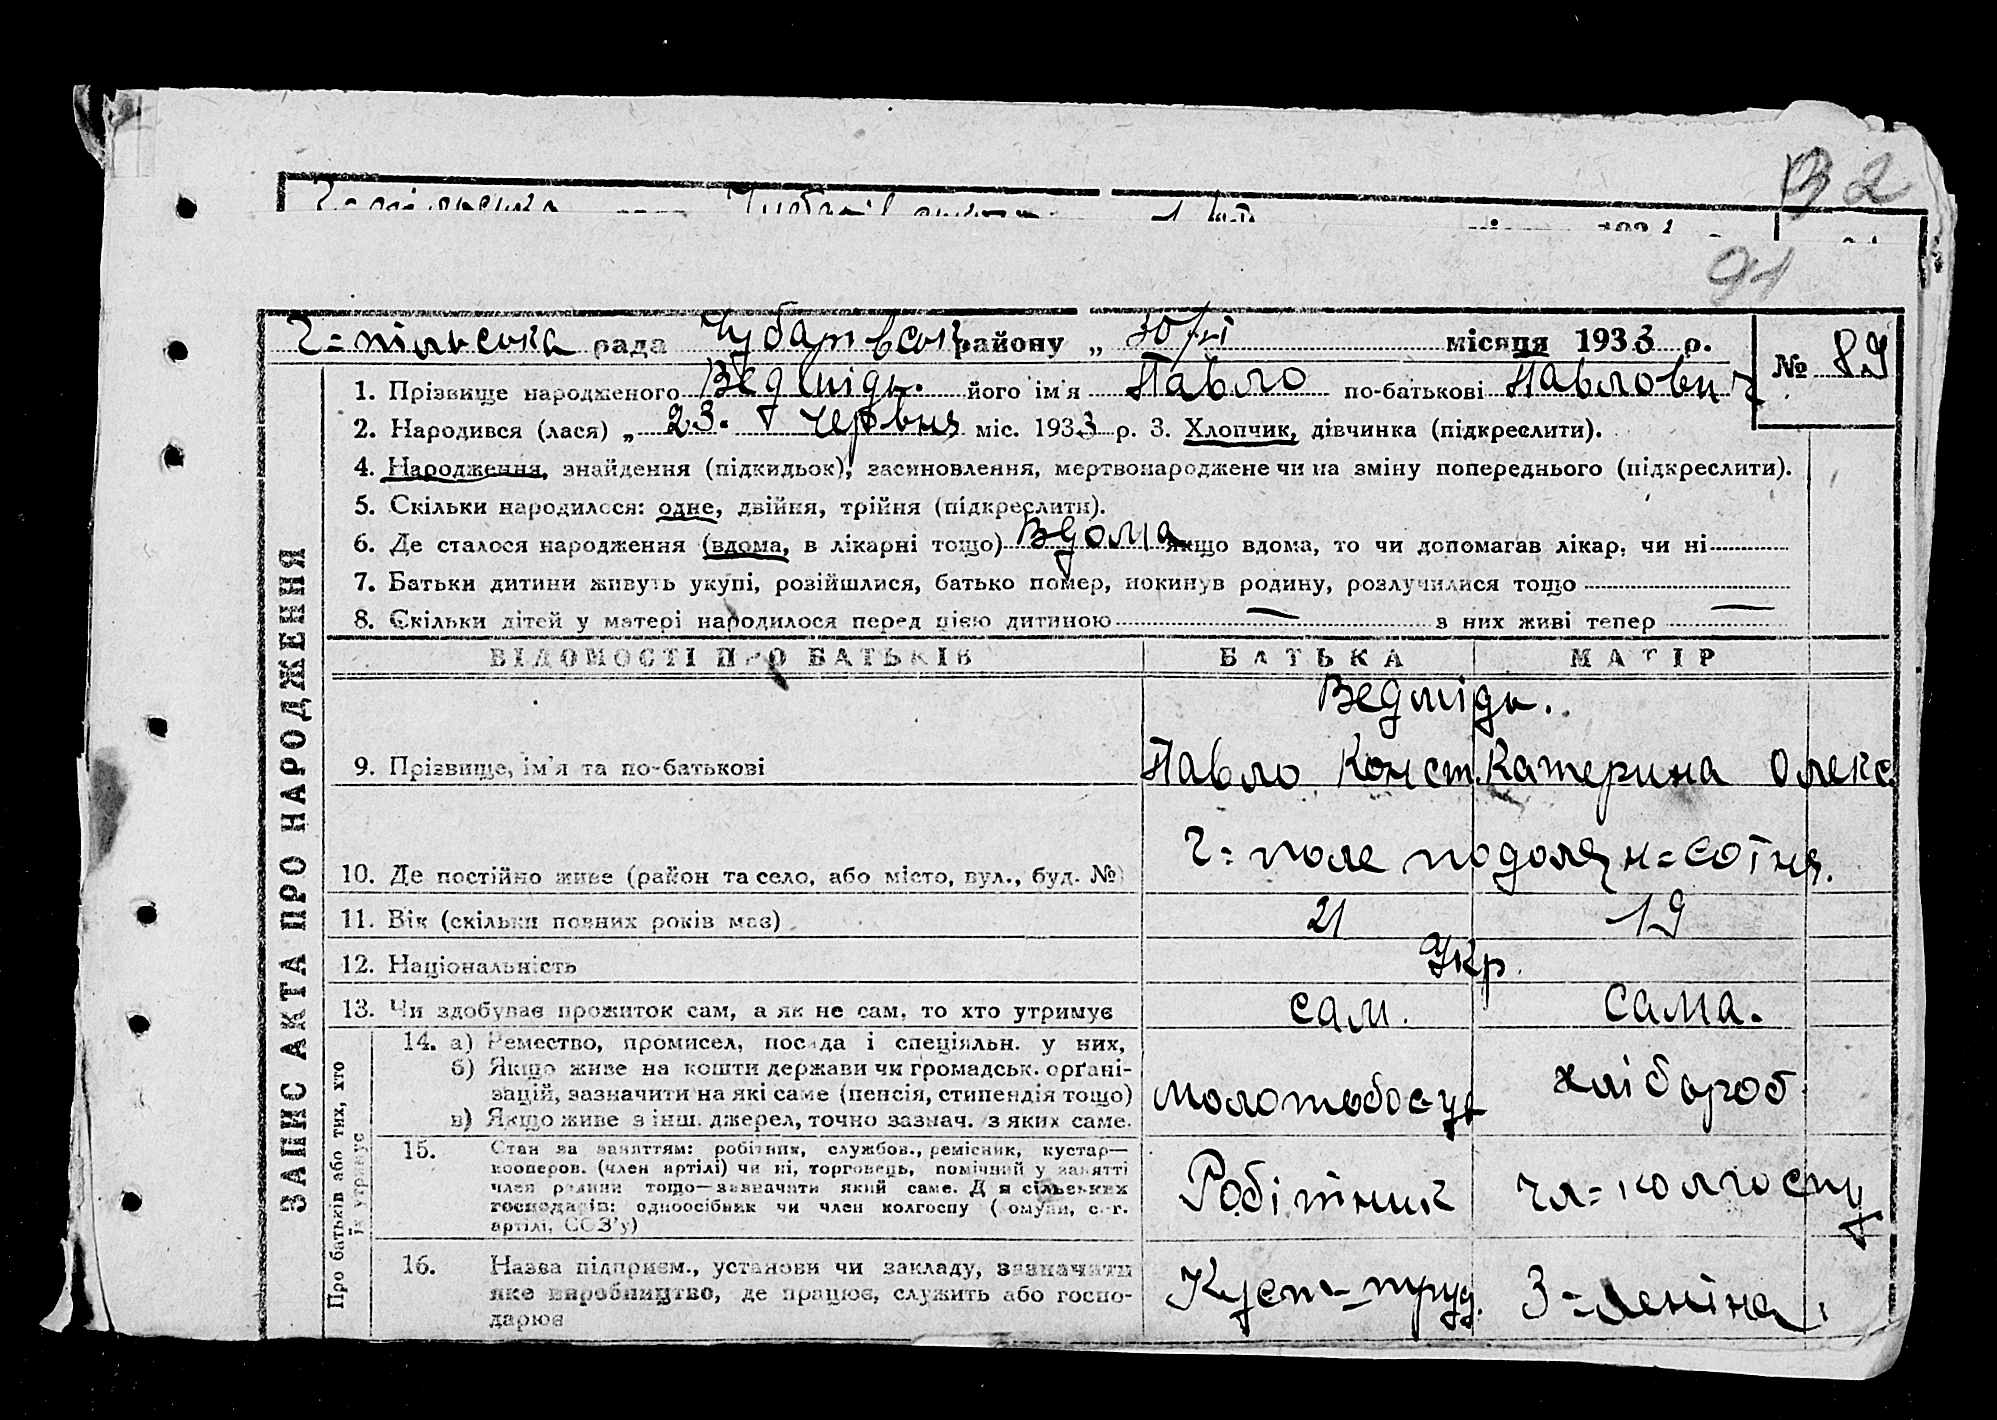 В 2
91
Г=пільська рада Чубарівськ району „ 30/VI місяця 1933 р.
№ 89
1. Прізвище народженого Ведмідь. його ім'я Павло по-батькові Павлович
2. Народився (лася) „ 23. червня міс. 1933 р. 3. Хлопчик, дівчинка (підкреслити).
4. Народження, знайдення (підкидьок), засиновлення, мертвонароджене чи на зміну попереднього (підкреслити).
5. Скільки народилося: одне, двійня, трійня (підкреслити).
6. Де сталося народження (вдома, в лікарні тощо) Вдома якщо вдома, то чи допомагав лікар, чи ні
7. Батьки дитини живуть укупі, розійшлися, батько помер, покинув родину, розлучилися тощо
8. Скільки дітей у матері народилося перед цією дитиною — з них живі тепер —
ЗАПИС АКТА ПРО НАРОДЖЕННЯ
ВІДОМОСТІ ПРО БАТЬКІВ БАТЬКА МАТІР
Ведмідь.
9. Прізвище, ім'я та по-батькові Павло Конст. Катерина Олекс
10. Де постійно живе (район та село, або місто, вул., буд. №) Г=поле подоля н=сотня.
11. Вік (скільки повних років має) 21 19
12. Національність Укр.
13. Чи здобуває прожиток сам, а як не сам, то хто утримує сам. сама.
Про батьків або тих, хто їх утримує
14. а) Ремество, промисел, посада і спеціяльн. у них,
б) Якщо живе на кошти держави чи громадськ. орґані-
зацій, зазначити на які саме (пенсія, стипендія тощо)
в) Якщо живе з інш. джерел, точно зазнач. з яких саме.
молотобоєць хлібороб
15. Стан за заняттям: робітник, службов., ремісник, кустар—
кооперов. (член артілі) чи ні, торговець, помічний у занятті
член родини тощо—зазначити який саме. Для сільських
господарів: одноосібник чи член колгоспу (комуни, с.-г.
артілі, СОЗ'у)
Робітник чл=колгоспу
16. Назва підприєм., установи чи закладу, зазначити
яке виробництво, де працює, служить або госпо-
дарює
Куст=труд. З=Леніна,